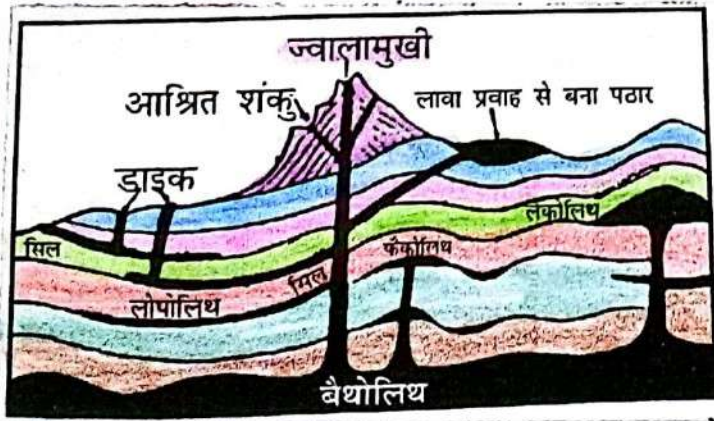 ज्वालामुखी
आश्रित शंकु
लावा प्रवाह से बना पठार
डाइक
लैकोलिथ
सिल
फैकोलिथ
सिल
लोपोलिथ
बैथोलिथ